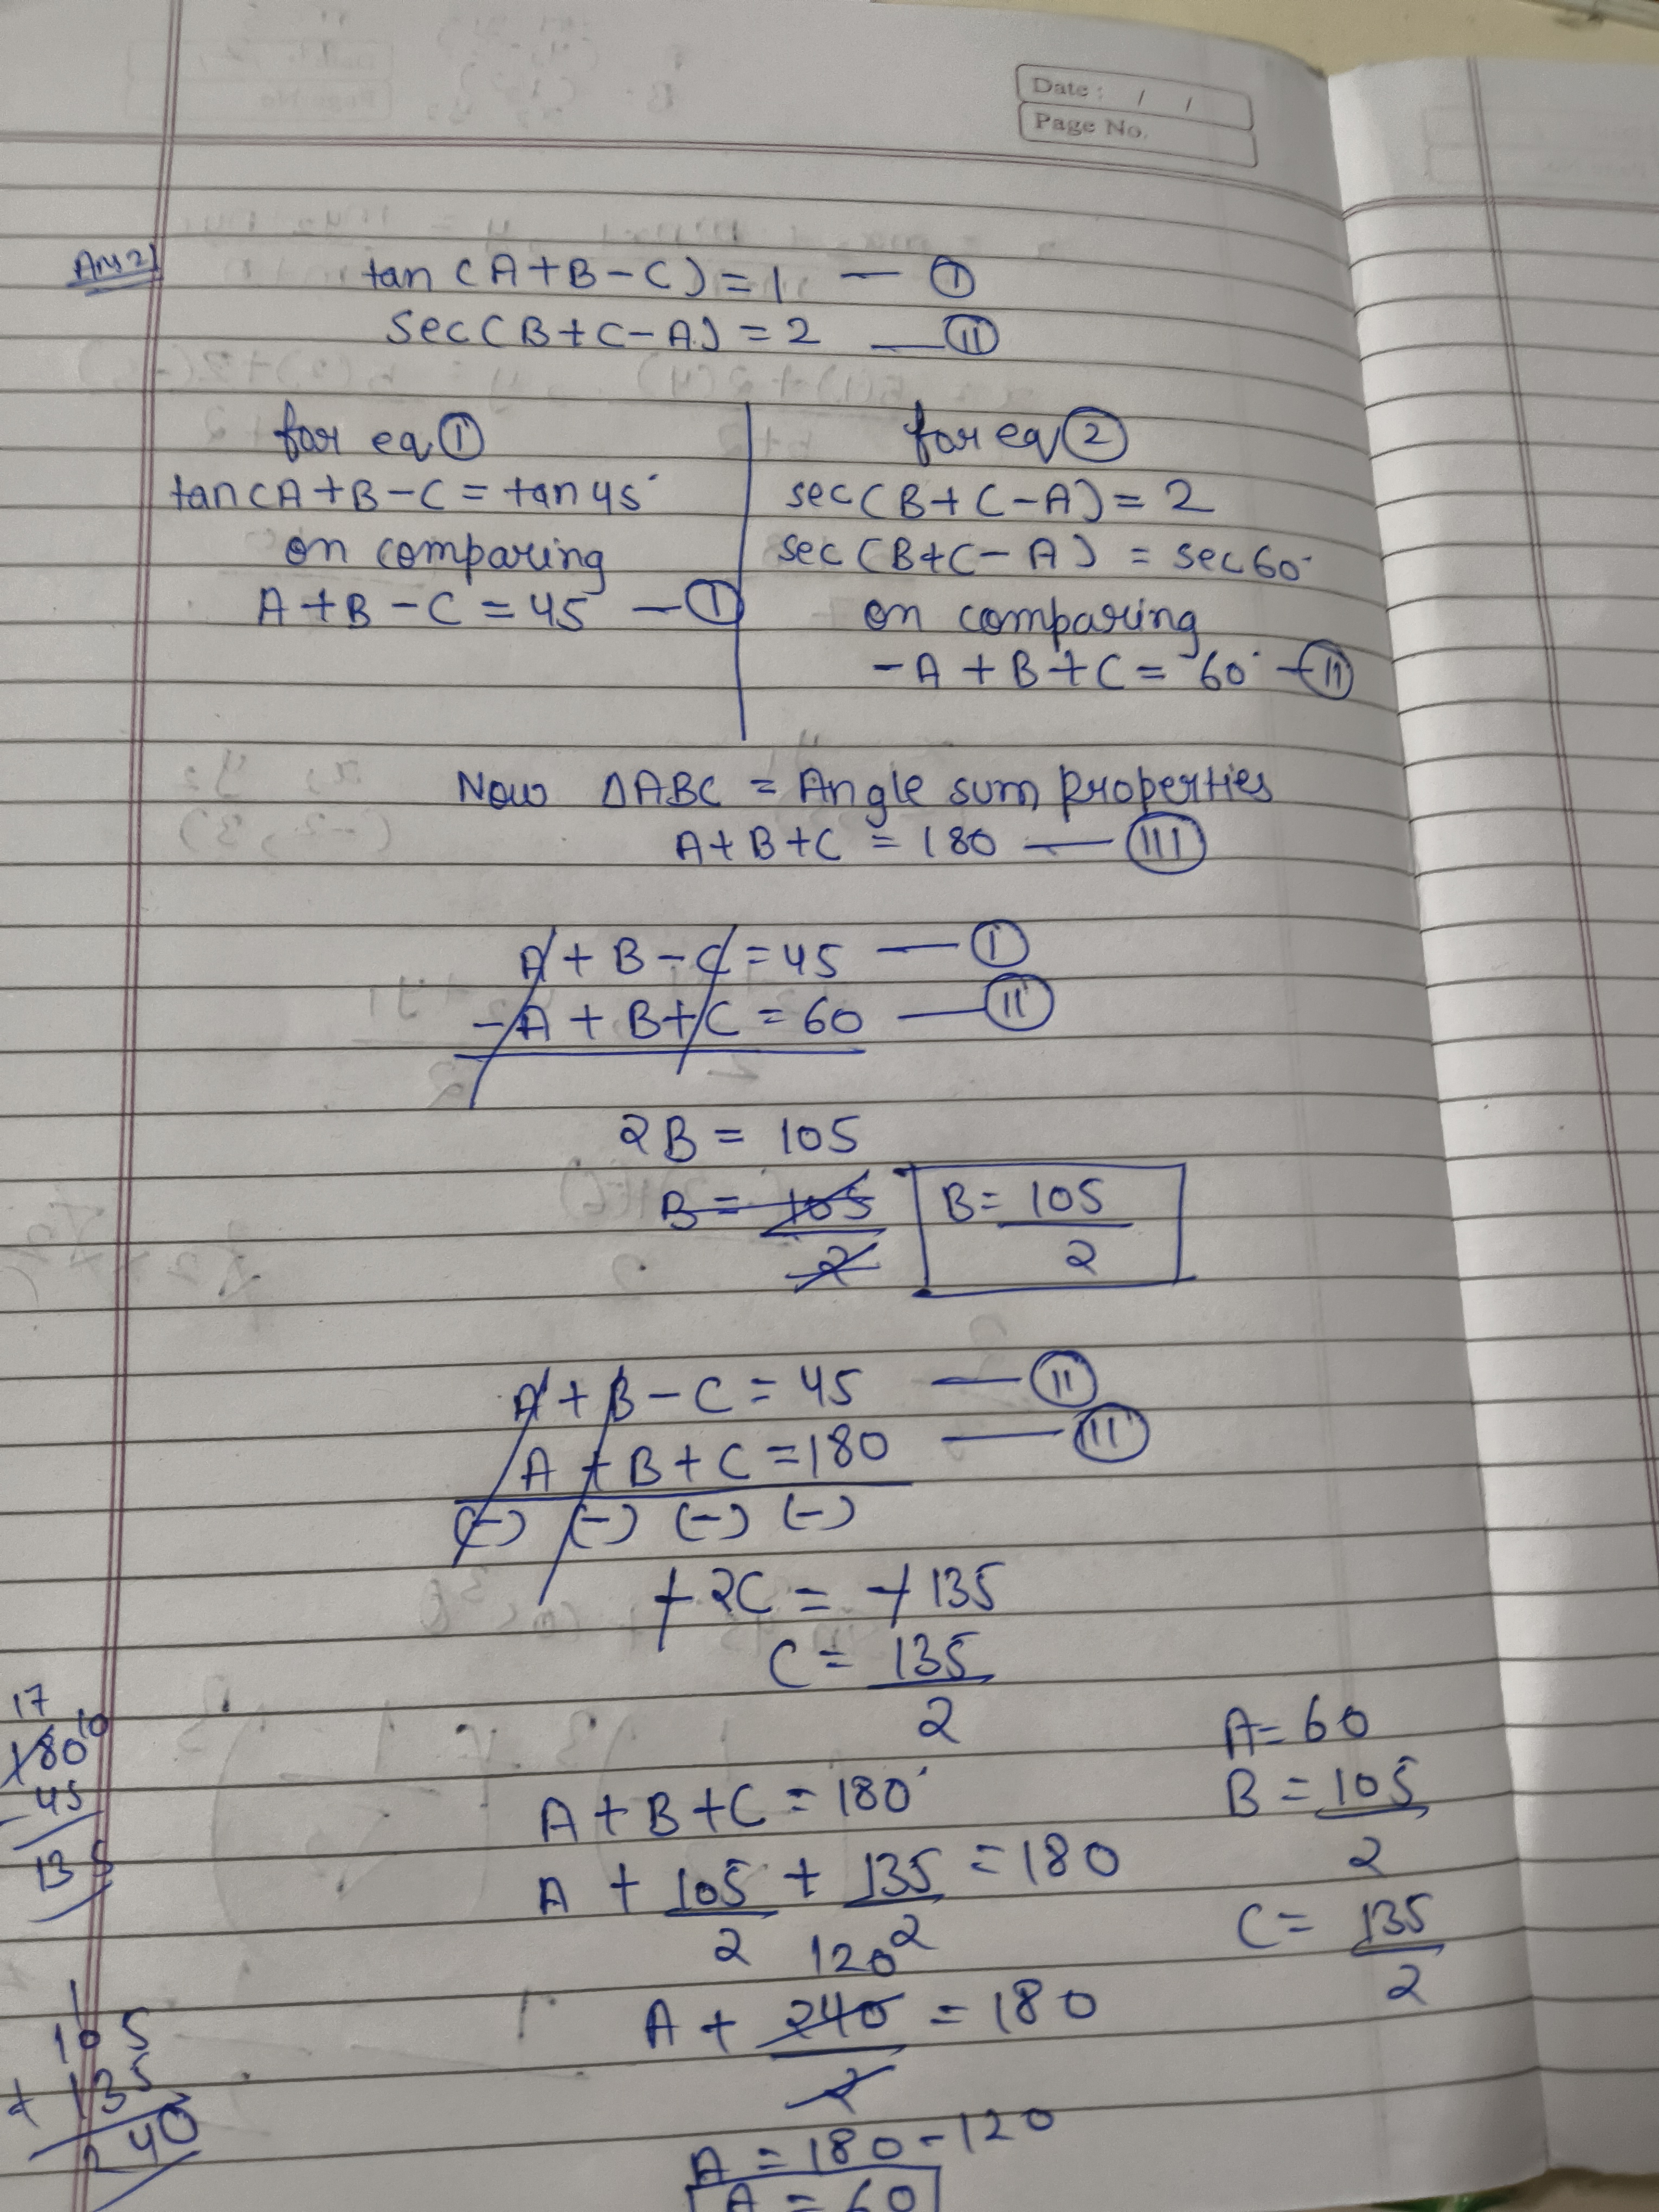 Date : / /
Page No.
Ans 2)
tan (A+B-C) = 1 — (I)
sec(B+C-A) = 2 — (II)
for eq (1)
tan(A+B-C = tan 45°
on comparing
A+B-C = 45 — (I)
for eq (2)
sec(B+C-A) = 2
sec(B+C-A) = sec 60°
on comparing
-A+B+C = 60° — (II)
Now ΔABC = Angle sum properties
A+B+C = 180 — (III)
A+B-C = 45 — (I)
-A+B+C = 60 — (II)
2B = 105
B = 105/2 B = 105/2
A+B-C = 45 — (II)
A+B+C = 180 — (III)
(-) (-) (-) (-)
-2C = -135
C = 135/2
A+B+C = 180°
A + 105/2 + 135/2 = 180
120
A + 240/2 = 180
A = 180-120
A = 60
A = 60
B = 105/2
C = 135/2
17 10
180
- 45
135
1
105
+ 135
240